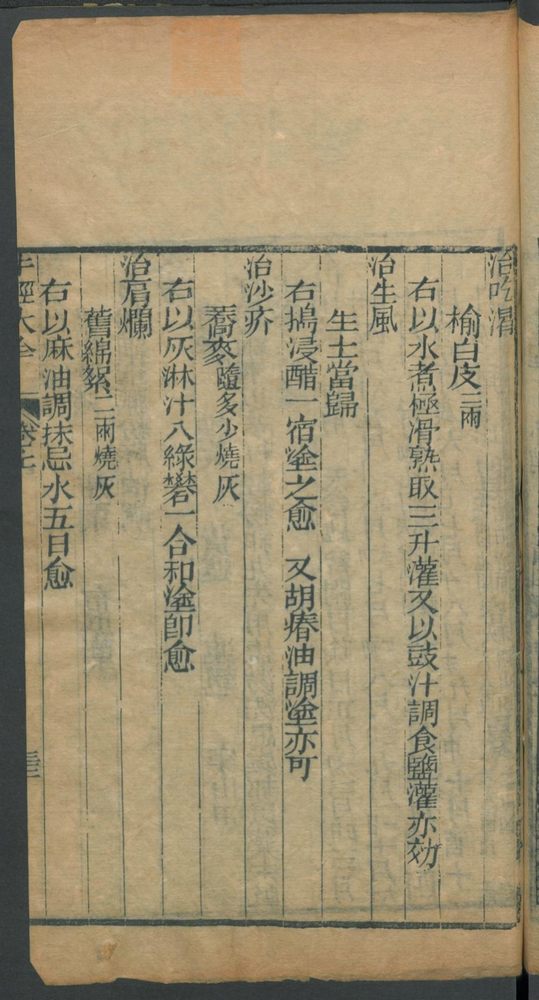 治吃潺
榆白皮三兩
右以水煮極滑熟取三升灌又以豉汁調食鹽灌亦効
治生風
生土當歸
右搗浸醋一宿塗之愈 又胡瘠油調塗亦可
治沙疥
蕎麥隨多少燒灰
右以灰淋汁入綠礬一合和塗卽愈
治肩爛
舊綿絮二兩燒灰
右以麻油調抹忌水五日愈
牛經大全 卷下